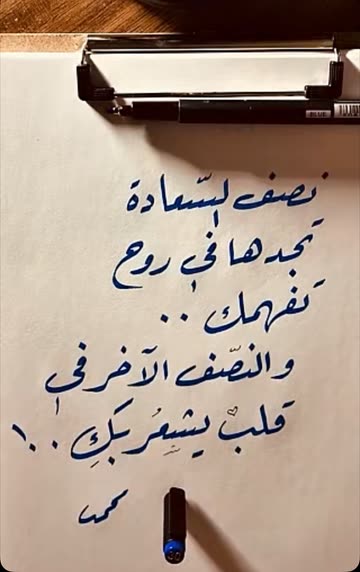 BLUE
نصف السّعادة
تجدها في روح
تفهمك ..
والنصّف الآخر في
قلبْ يشعُر بكِ ..!
محمد